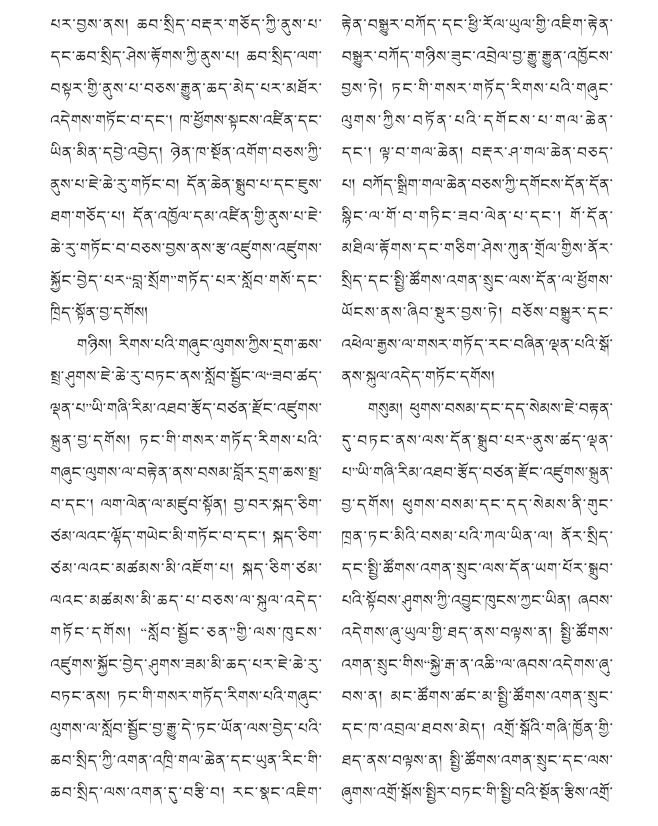 པར་བྱས་ནས། ཆབ་སྲིད་བརྡར་གཅོད་ཀྱི་ནུས་པ་
དང་ཆབ་སྲིད་ཤེས་རྟོགས་ཀྱི་ནུས་པ། ཆབ་སྲིད་ལག་
བསྟར་གྱི་ནུས་པ་བཅས་རྒྱུན་ཆད་མེད་པར་མཐོར་
འདེགས་གཏོང་བ་དང་། ཁ་ཕྱོགས་སྟངས་འཛིན་དང་
ཡིན་མིན་དབྱེ་འབྱེད། ཉེན་ཁ་སྔོན་འགོག་བཅས་ཀྱི་
ནུས་པ་ཇེ་ཆེ་རུ་གཏོང་བ། དོན་ཆེན་སྒྲུབ་པ་དང་ཇུས་
ཐག་གཅོད་པ། དོན་འཁྱོལ་དམ་འཛིན་གྱི་ནུས་པ་ཇེ་
ཆེ་རུ་གཏོང་བ་བཅས་བྱས་ནས་རྩ་འཛུགས་འཛུགས་
སྐྱོང་བྱེད་པར་“བླ་སྲོག”གཏོད་པར་སློབ་གསོ་དང་
ཁྲིད་སྟོན་བྱ་དགོས།
གཉིས། རིགས་པའི་གཞུང་ལུགས་ཀྱིས་དྲག་ཆས་
སྤྲ་ཤུགས་ཇེ་ཆེ་རུ་བཏང་ནས་སློབ་སྦྱོང་ལ་“ཟབ་ཚད་
ལྡན་པ”ཡི་གཞི་རིམ་འཐབ་རྩོད་བཙན་རྫོང་འཛུགས་
སྐྲུན་བྱ་དགོས། ཏང་གི་གསར་གཏོད་རིགས་པའི་
གཞུང་ལུགས་ལ་བརྟེན་ནས་བསམ་བློར་དྲག་ཆས་སྤྲ་
བ་དང་། ལག་ལེན་ལ་མཛུབ་སྟོན། བྱ་བར་སྐད་ཅིག་
ཙམ་ལའང་ལྷོད་གཡེང་མི་གཏོང་བ་དང་། སྐད་ཅིག་
ཙམ་ལའང་མཚམས་མི་འཇོག་པ། སྐད་ཅིག་ཙམ་
ལའང་མཚམས་མི་ཆད་པ་བཅས་ལ་སྐུལ་འདེད་
གཏོང་དགོས། “སློབ་སྦྱོང་ཅན”གྱི་ལས་ཁུངས་
འཛུགས་སྐྱོང་བྱེད་ཤུགས་ཟམ་མི་ཆད་པར་ཇེ་ཆེ་རུ་
བཏང་ནས། ཏང་གི་གསར་གཏོད་རིགས་པའི་གཞུང་
ལུགས་ལ་སློབ་སྦྱོང་བྱ་རྒྱུ་དེ་ཏང་ཡོན་ལས་བྱེད་པའི་
ཆབ་སྲིད་ཀྱི་འགན་འཁྲི་གལ་ཆེན་དང་ཡུན་རིང་གི་
ཆབ་སྲིད་ལས་འགན་དུ་བརྩི་བ། རང་སྣང་འཇིག་
རྟེན་བསྒྱུར་བཀོད་དང་ཕྱི་རོལ་ཡུལ་གྱི་འཇིག་རྟེན་
བསྒྱུར་བཀོད་གཉིས་ཟུང་འབྲེལ་བྱ་རྒྱུ་རྒྱུན་འཁྱོངས་
བྱས་ཏེ། ཏང་གི་གསར་གཏོད་རིགས་པའི་གཞུང་
ལུགས་ཀྱིས་བཏོན་པའི་དགོངས་པ་གལ་ཆེན་
དང་། ལྟ་བ་གལ་ཆེན། བརྡར་ཤ་གལ་ཆེན་བཅད་
པ། བཀོད་སྒྲིག་གལ་ཆེན་བཅས་ཀྱི་དགོངས་དོན་དོན་
སྙིང་ལ་གོ་བ་གཏིང་ཟབ་ལེན་པ་དང་། གོ་དོན་
མཐིལ་རྟོགས་དང་གཅིག་ཤེས་ཀུན་གྲོལ་གྱིས་ནོར་
སྲིད་དང་སྤྱི་ཚོགས་འགན་སྲུང་ལས་དོན་ལ་ཕྱོགས་
ཡོངས་ནས་ཞིབ་སྡུར་བྱས་ཏེ། བཅོས་བསྒྱུར་དང་
འཕེལ་རྒྱས་ལ་གསར་གཏོད་རང་བཞིན་ལྡན་པའི་སྒོ་
ནས་སྐུལ་འདེད་གཏོང་དགོས།
གསུམ། ཕུགས་བསམ་དང་དད་སེམས་ཇེ་བརྟན་
དུ་བཏང་ནས་ལས་དོན་སྒྲུབ་པར་“ནུས་ཚད་ལྡན་
པ”ཡི་གཞི་རིམ་འཐབ་རྩོད་བཙན་རྫོང་འཛུགས་སྐྲུན་
བྱ་དགོས། ཕུགས་བསམ་དང་དད་སེམས་ནི་གུང་
ཁྲན་ཏང་མིའི་བསམ་པའི་ཀལ་ཡིན་ལ། ནོར་སྲིད་
དང་སྤྱི་ཚོགས་འགན་སྲུང་ལས་དོན་ཡག་པོར་སྒྲུབ་
པའི་སྟོབས་ཤུགས་ཀྱི་འབྱུང་ཁུངས་ཀྱང་ཡིན། ཞབས་
འདེགས་ཞུ་ཡུལ་གྱི་ཐད་ནས་བལྟས་ན། སྤྱི་ཚོགས་
འགན་སྲུང་གིས་“སྐྱེ་རྒ་ན་འཆི”ལ་ཞབས་འདེགས་ཞུ་
བས་ན། མང་ཚོགས་ཚང་མ་སྤྱི་ཚོགས་འགན་སྲུང་
དང་ཁ་འབྲལ་ཐབས་མེད། འགྲོ་སྒོའི་གཞི་ཁྱོན་གྱི་
ཐད་ནས་བལྟས་ན། སྤྱི་ཚོགས་འགན་སྲུང་དང་ལས་
ཞུགས་འགྲོ་སྒོས་སྤྱིར་བཏང་གི་སྤྱི་བའི་སྔོན་རྩིས་འགྲོ་